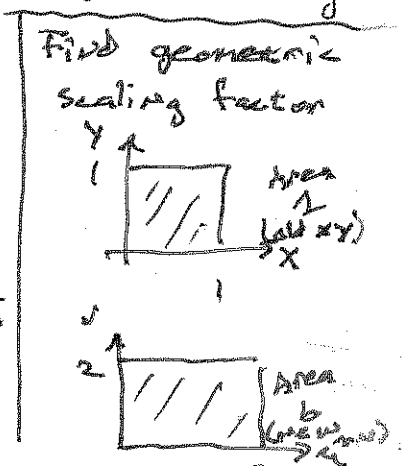 Find geometric
scaling factor
Y
1
Area
1
(old xy)
X
1
v
2
Area
b
(new uv)
u